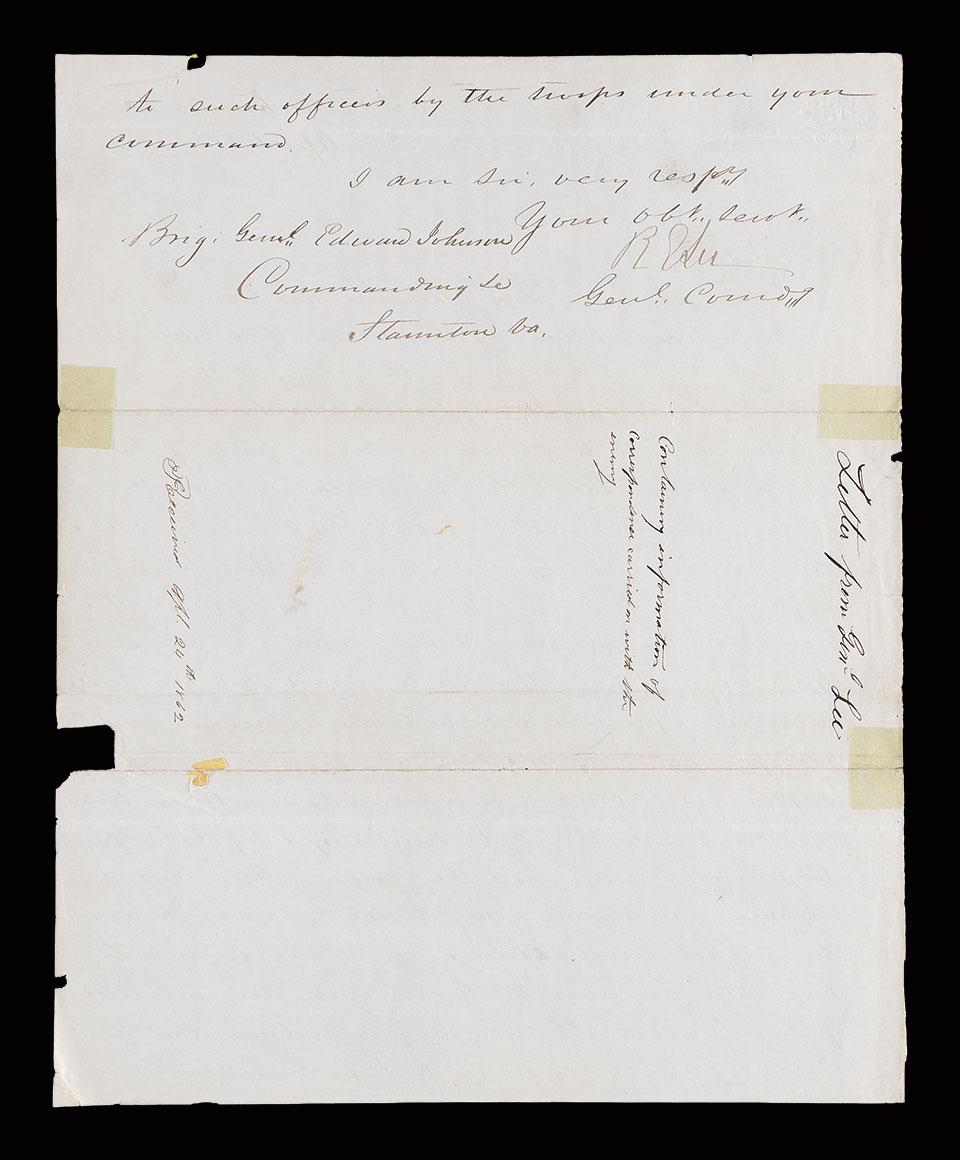 to such officers by the troops under your
command.
I am Sir, very respy
Your Obt. Servt.
R E Lee
Genl. Comdg
Brig: Genl. Edward Johnson
Commanding &c
Staunton Va.
Letter from Genl Lee
Containing information of
correspondence carried on with the
enemy
Received Apl. 24th 1862